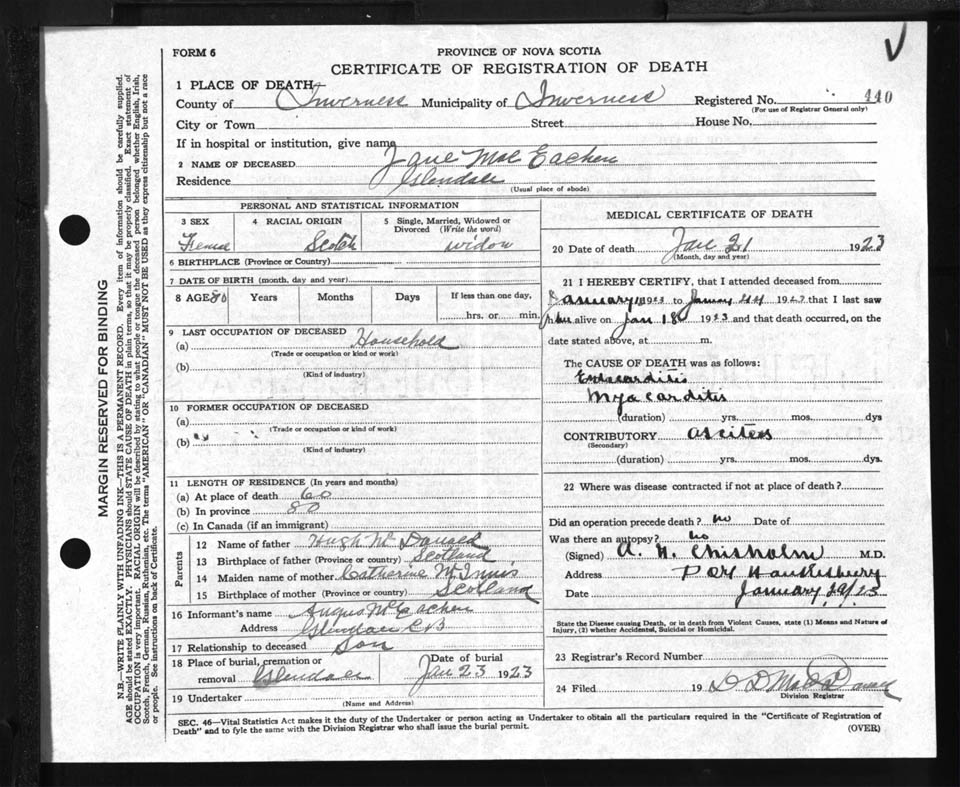 FORM 6
PROVINCE OF NOVA SCOTIA
CERTIFICATE OF REGISTRATION OF DEATH
1 PLACE OF DEATH
County of Inverness Municipality of Inverness Registered No. 440
(For use of Registrar General only)
City or Town Street House No.
If in hospital or institution, give name
2 NAME OF DECEASED Jane Mac Eachen
Residence Glendale
(Usual place of abode)
PERSONAL AND STATISTICAL INFORMATION
3 SEX 4 RACIAL ORIGIN 5 Single, Married, Widowed or Divorced (Write the word)
Female Scotch widow
6 BIRTHPLACE (Province or Country)
7 DATE OF BIRTH (month, day, and year)
8 AGE 80 Years Months Days If less than one day,
hrs. or min.
9 LAST OCCUPATION OF DECEASED
(a) Household
(Trade or occupation or kind or work)
(b)
(Kind of industry)
10 FORMER OCCUPATION OF DECEASED
(a)
(Trade or occupation or kind of work)
(b)
(Kind of industry)
11 LENGTH OF RESIDENCE (In years and months)
(a) At place of death 60
(b) In province 80
(c) In Canada (if an immigrant)
Parents
12 Name of father Hugh McDonald
13 Birthplace of father (Province or country) Scotland
14 Maiden name of mother Catherine McInnis
15 Birthplace of mother (Province or country) Scotland
16 Informant's name Angus McEachen
Address Glendale C B
17 Relationship to deceased Son
18 Place of burial, cremation or removal Glendale Date of burial Jan 23 1923
19 Undertaker
(Name and Address)
MEDICAL CERTIFICATE OF DEATH
20 Date of death Jan 21 1923
(Month, day and year)
21 I HEREBY CERTIFY, that I attended deceased from
January 1923 to January 192 that I last saw
h alive on Jan 18 1923 and that death occurred, on the
date stated above, at m.
The CAUSE OF DEATH was as follows:
Endocarditis
Myocarditis
(duration) yrs. mos. dys
CONTRIBUTORY Ascites
(Secondary)
(duration) yrs. mos. dys.
22 Where was disease contracted if not at place of death?
Did an operation precede death? no Date of
Was there an autopsy? no
(Signed) A. N. Chisholm M.D.
Address Port Hawkesbury
Date January 29/23
State the Disease causing Death, or in death from Violent Causes, state (1) Means and Nature of
Injury, (2) whether Accidental, Suicidal or Homicidal.
23 Registrar's Record Number
24 Filed 19 D D MacDonald
Division Registrar
SEC. 46—Vital Statistics Act makes it the duty of the Undertaker or person acting as Undertaker to obtain all the particulars required in the "Certificate of Registration of
Death" and to fyle the same with the Division Registrar who shall issue the burial permit.
(OVER)
MARGIN RESERVED FOR BINDING
N.B.—WRITE PLAINLY WITH UNFADING INK—THIS IS A PERMANENT RECORD. Every item of information should be carefully supplied.
AGE should be stated EXACTLY. PHYSICIANS should STATE CAUSE OF DEATH in plain terms, so that it may be properly classified. Exact statement of
OCCUPATION is very important. RACIAL ORIGIN will be described by stating to what people or tongue the deceased person belonged whether English, Irish,
Scotch, French, German, Russian, Ruthenian, etc. The terms "AMERICAN" or "CANADIAN" MUST NOT BE USED as they express citizenship but not a race
or people. See instructions on back of Certificate.